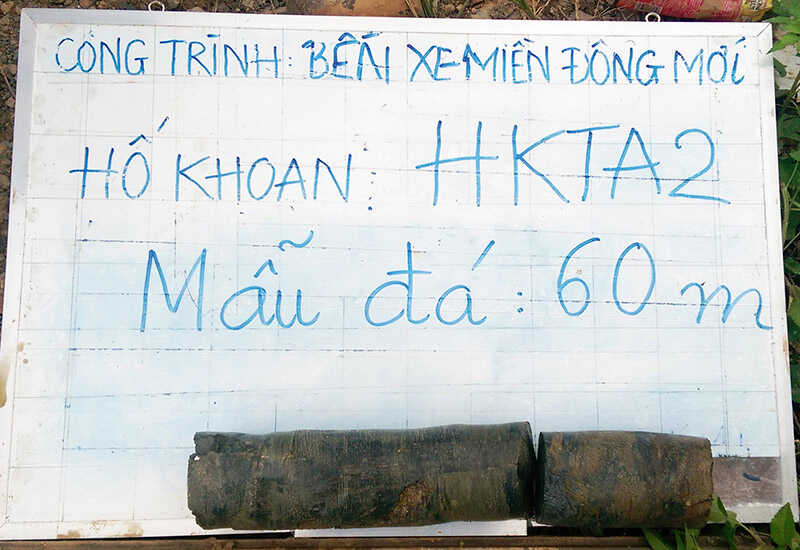 CÔNG TRÌNH: BẾN XE MIỀN ĐÔNG MỚI
HỐ KHOAN: HKTA2
Mẫu đá: 60m